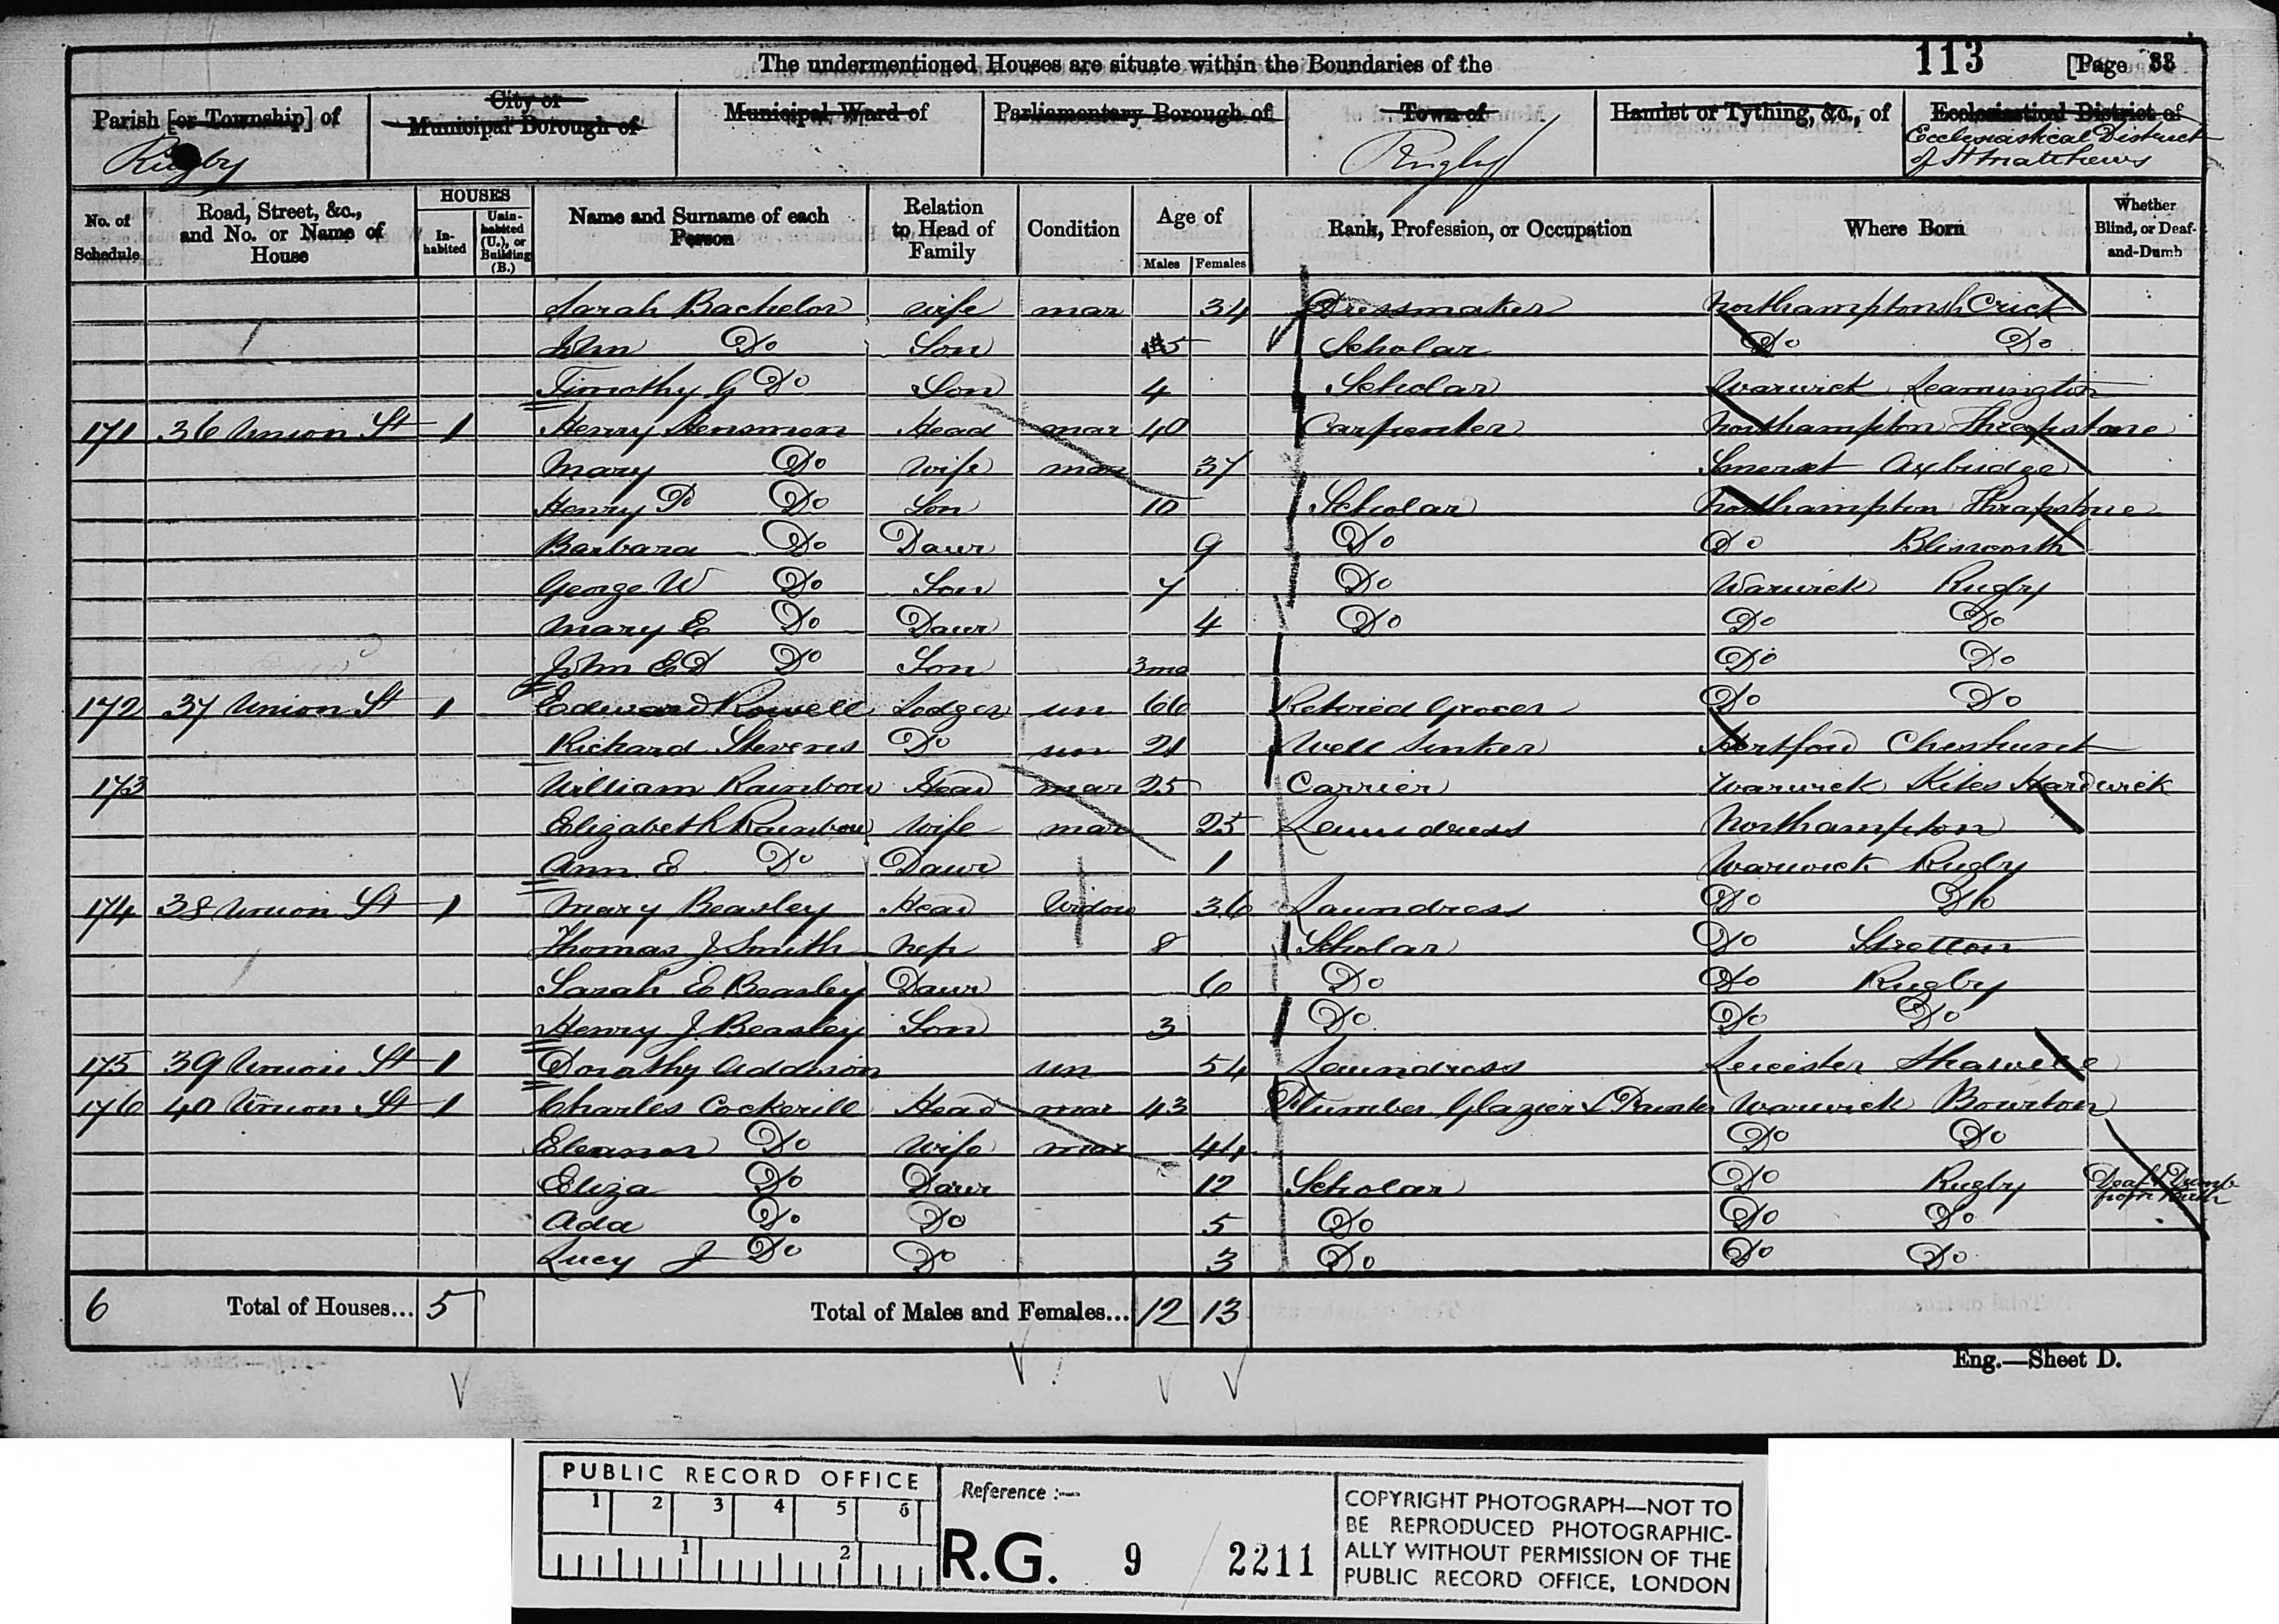 The undermentioned Houses are situate within the Boundaries of the
113 [Page 33
Parish [or Township] of
Rugby
City or Municipal Borough of
Municipal Ward of
Parliamentary Borough of
Town of
Rugby
Hamlet or Tything, &c., of
Ecclesiastical District of
Ecclesiastical District
of St Matthews
No. of Schedule
Road, Street, &c., and No. or Name of House
HOUSES
Inhabited
Uninhabited (U.), or Building (B.)
Name and Surname of each Person
Relation to Head of Family
Condition
Age of
Males Females
Rank, Profession, or Occupation
Where Born
Whether Blind, or Deaf-and-Dumb
Sarah Bachelor wife mar 34 Dressmaker Northamptonsh Crick
John Do Son 5 Scholar Do Do
Timothy G Do Son 4 Scholar Warwick Leamington
171 36 Union St 1 Henry Hensman Head mar 40 Carpenter Northampton Thrapstone
Mary Do wife mar 37 Somerset Axbridge
Henry P Do Son 10 Scholar Northampton Thrapstone
Barbara Do Daur 9 Do Do Blisworth
George W Do Son 7 Do Warwick Rugby
Mary E Do Daur 4 Do Do Do
John E D Do Son 3mo Do Do
172 37 Union St 1 Edward Rowell Lodger un 66 Retired Grocer Do Do
Richard Stevens Do un 21 Well Sinker Hertford Cheshunt
173 William Rainbow Head mar 25 Carrier Warwick Kites Hardwick
Elizabeth Rainbow wife mar 25 Laundress Northampton
Ann E Do Daur 1 Warwick Rugby
174 38 Union St 1 Mary Beasley Head Widow 36 Laundress Do Do
Thomas J Smith nep 8 Scholar Do Stretton
Sarah E Beasley Daur 6 Do Do Rugby
Henry J. Beasley Son 3 Do Do Do
175 39 Union St 1 Dorothy Addison un 54 Laundress Leicester Shawell
176 40 Union St 1 Charles Cockerill Head mar 43 Plumber Glazier & Painter Warwick Bourton
Eleanor Do wife mar 44 Do Do
Eliza Do Daur 12 Scholar Do Rugby Deaf & Dumb from Birth
Ada Do Do 5 Do Do Do
Lucy J Do Do 3 Do Do Do
6 Total of Houses... 5 Total of Males and Females... 12 13
Eng.—Sheet D.
PUBLIC RECORD OFFICE
1 2 3 4 5 6
1 2
Reference :—
R.G. 9 / 2211
COPYRIGHT PHOTOGRAPH—NOT TO
BE REPRODUCED PHOTOGRAPHIC-
ALLY WITHOUT PERMISSION OF THE
PUBLIC RECORD OFFICE, LONDON